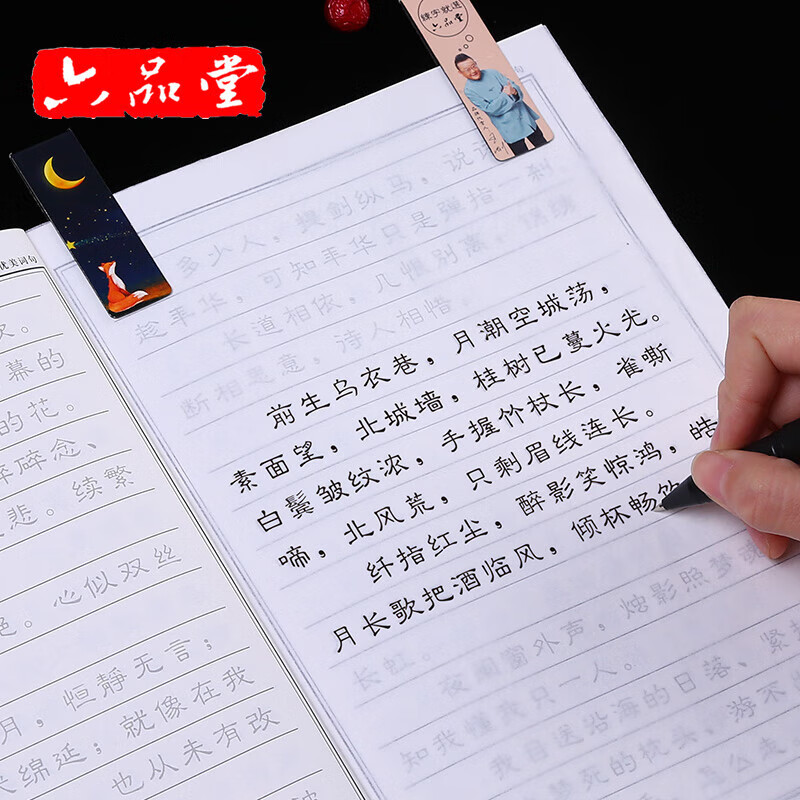 六品堂
練字就選
六品堂
优美词句
幕的
的花。
碎碎念、
悲。续繁
心似双丝
月，恒静无言；
绵延；就像在我
也从未有改
多少人，提剑纵马，说
趁年华，可知年华只是弹指一刹
长道相依，几恨别离，
断相思意，诗人相惜。
前生乌衣巷，月潮空城荡，
素面望，北城墙，桂树已蔓火光。
白鬓皱纹浓，手握竹杖长，雀嘶
啼，北风荒，只剩眉线连长。
纤指红尘，醉影笑惊鸿，皓
月长歌把酒临风，倾杯畅
长虹。
夜阑窗外声，烛影照梦魂
知我懂我只一人。
我目送沿海的日落、紧
死的枕头、游不